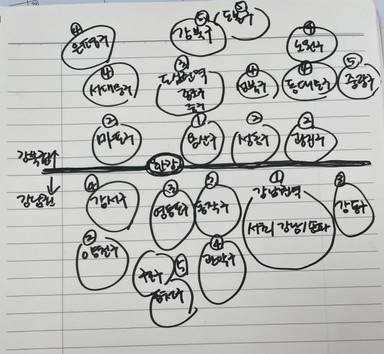 ⑤ ⑤
강북구 도봉구
④ ④
은평구 노원구
④ ③ ④ ④ ⑤
서대문구 도심권역 성북구 동대문구 중랑구
종로구
중구
② ① ② ②
마포구 용산구 성동구 광진구
강북권↑
한강
↓
강남권
④ ③ ② ① ③
강서구 영등포 동작구 강남권역 강동구
서초/강남/송파
② ④
양천구 관악구
⑤
구로구
금천구